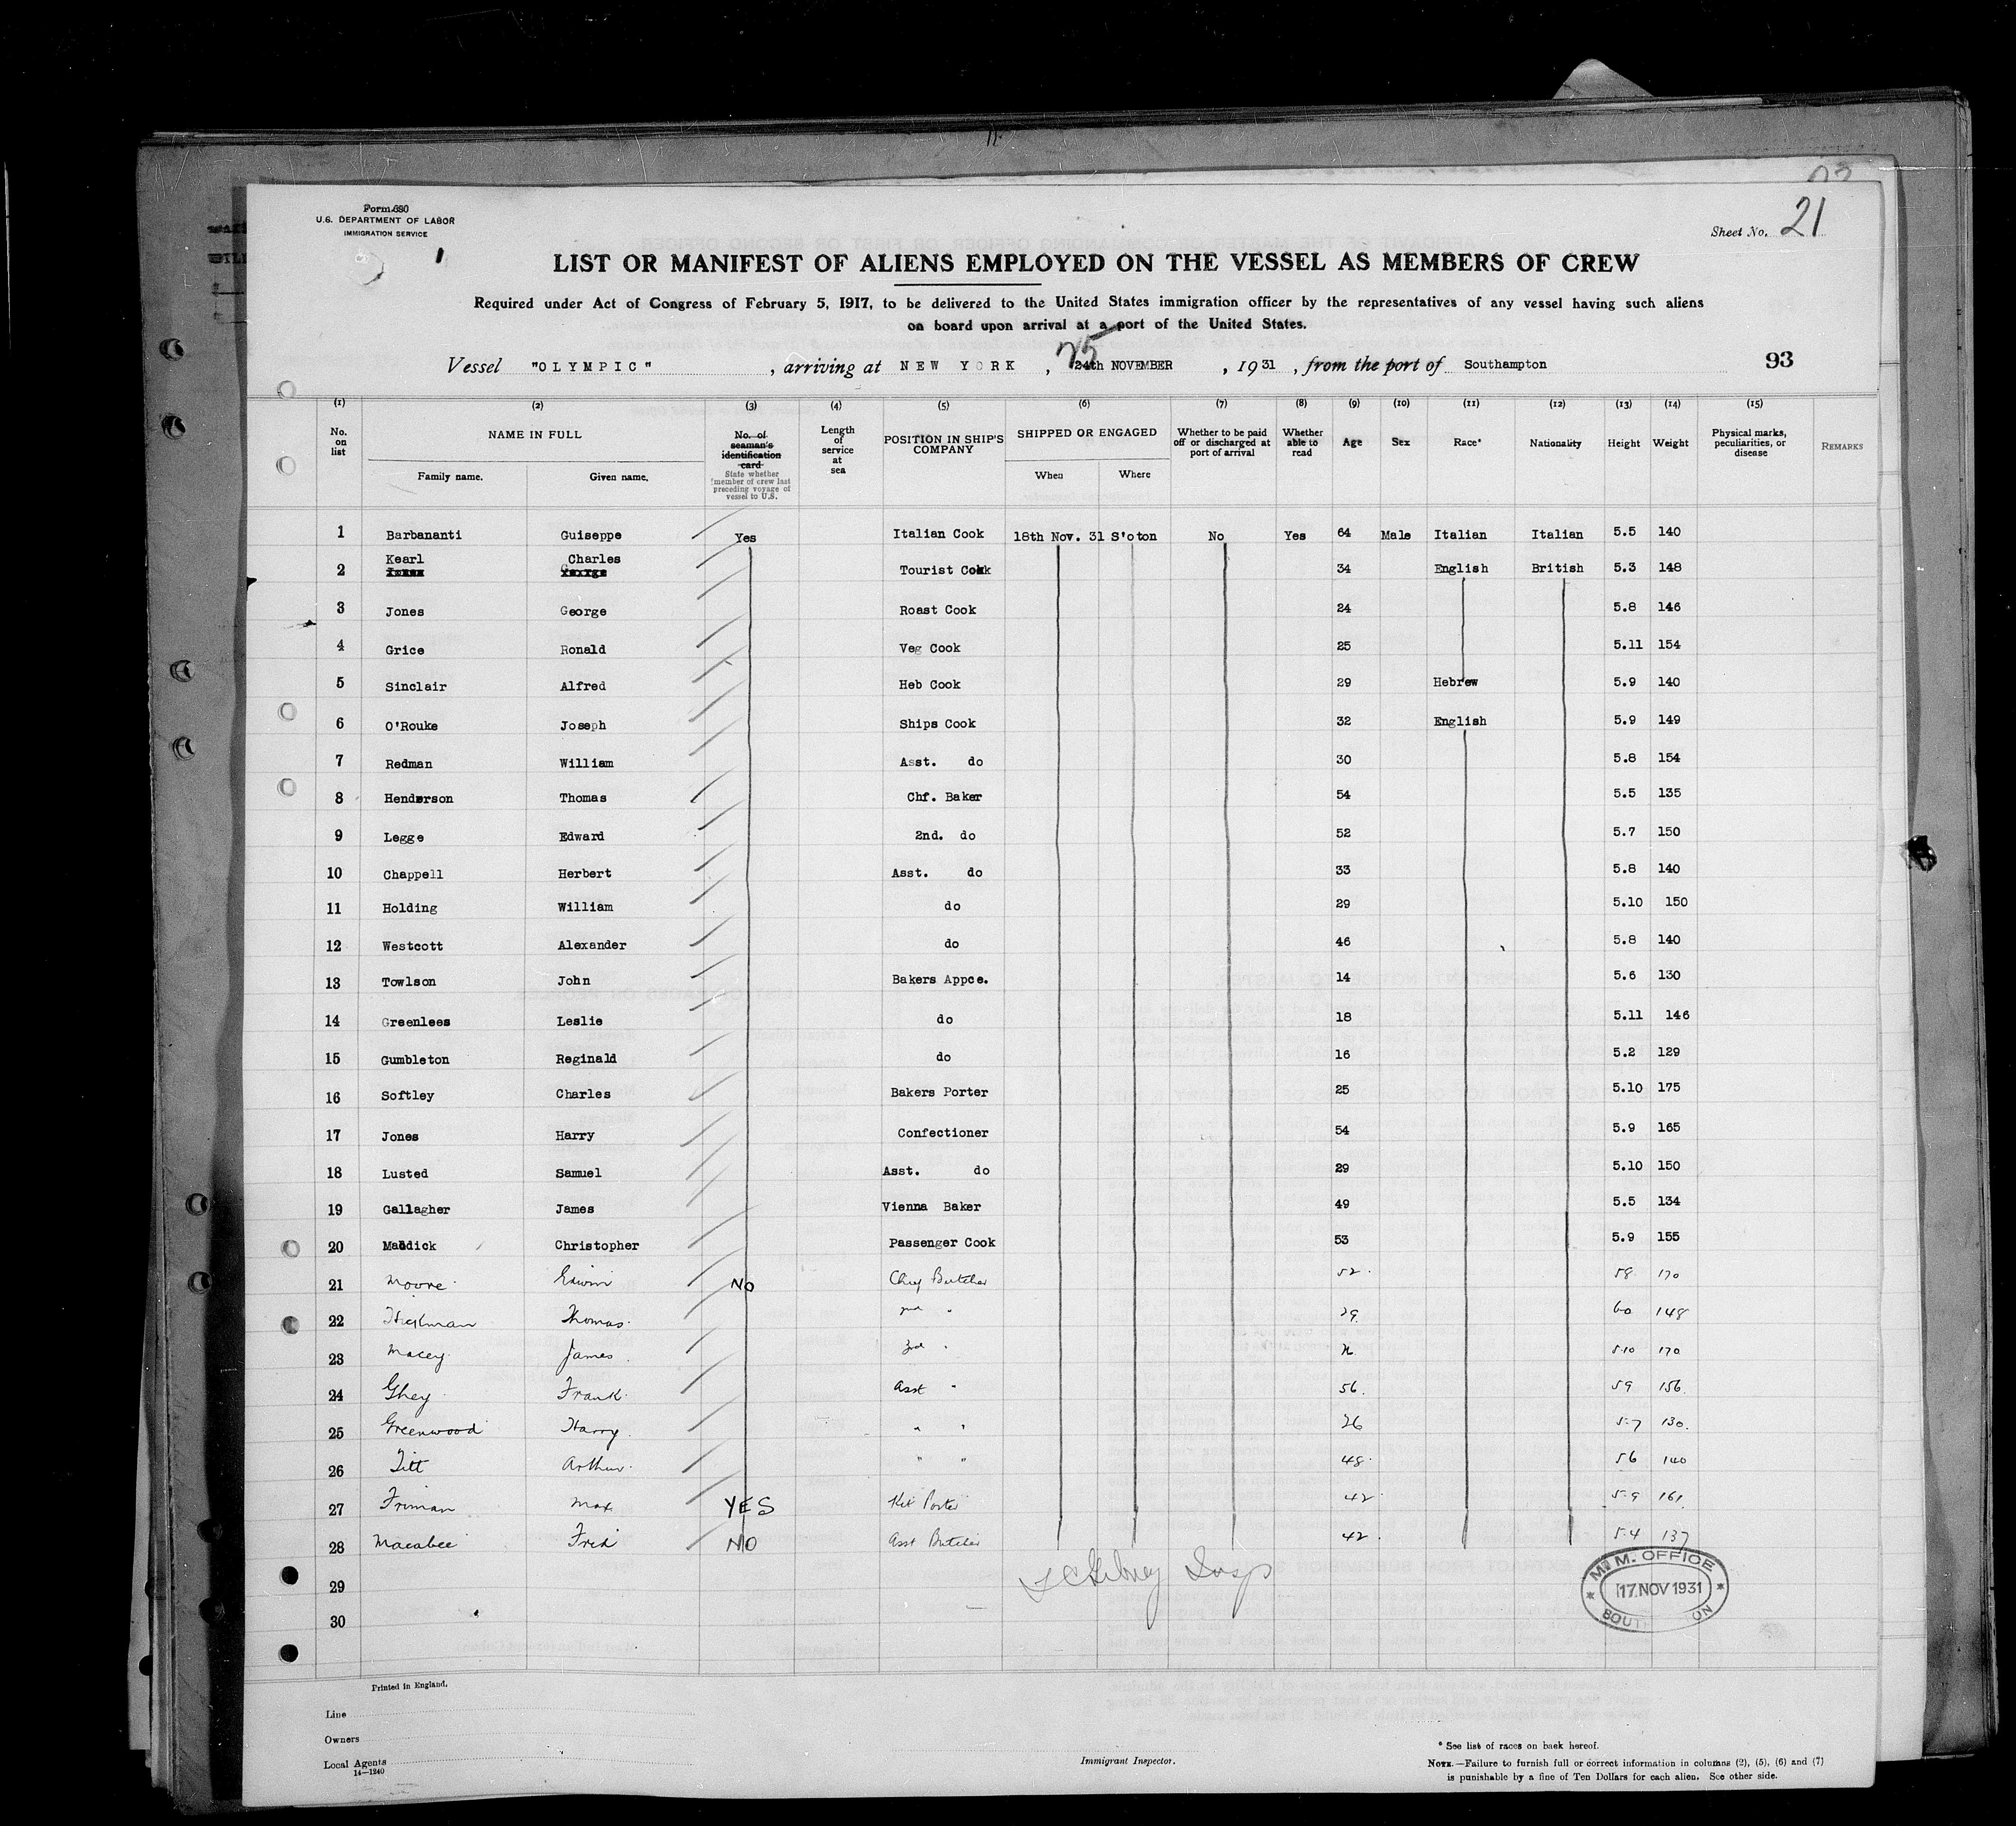 Form 680
U.S. DEPARTMENT OF LABOR
IMMIGRATION SERVICE
Sheet No. 21
LIST OR MANIFEST OF ALIENS EMPLOYED ON THE VESSEL AS MEMBERS OF CREW
Required under Act of Congress of February 5, 1917, to be delivered to the United States immigration officer by the representatives of any vessel having such aliens
on board upon arrival at a port of the United States.
Vessel "OLYMPIC", arriving at NEW YORK, 25 24th NOVEMBER, 1931, from the port of Southampton 93
(1) (2) (3) (4) (5) (6) (7) (8) (9) (10) (11) (12) (13) (14) (15)
No. on list NAME IN FULL Family name. Given name. No. of seaman's identification card State whether member of crew last preceding voyage of vessel to U.S. Length of service at sea POSITION IN SHIP'S COMPANY SHIPPED OR ENGAGED When Where Whether to be paid off or discharged at port of arrival Whether able to read Age Sex Race* Nationality Height Weight Physical marks, peculiarities, or disease REMARKS
1 Barbananti Guiseppe Yes Italian Cook 18th Nov. 31 S'oton No Yes 64 Male Italian Italian 5.5 140
2 Kearl Charles Tourist Cook 34 English British 5.3 148
3 Jones George Roast Cook 24 5.8 146
4 Grice Ronald Veg Cook 25 5.11 154
5 Sinclair Alfred Heb Cook 29 Hebrew 5.9 140
6 O'Rouke Joseph Ships Cook 32 English 5.9 149
7 Redman William Asst. do 30 5.8 154
8 Henderson Thomas Chf. Baker 54 5.5 135
9 Legge Edward 2nd. do 52 5.7 150
10 Chappell Herbert Asst. do 33 5.8 140
11 Holding William do 29 5.10 150
12 Westcott Alexander do 46 5.8 140
13 Towlson John Bakers Appce. 14 5.6 130
14 Greenlees Leslie do 18 5.11 146
15 Gumbleton Reginald do 16 5.2 129
16 Softley Charles Bakers Porter 25 5.10 175
17 Jones Harry Confectioner 54 5.9 165
18 Lusted Samuel Asst. do 29 5.10 150
19 Gallagher James Vienna Baker 49 5.5 134
20 Maddick Christopher Passenger Cook 53 5.9 155
21 Moore Edwin NO Chief Butcher 52 5 8 170
22 Hickman Thomas 2nd " 29 6-0 148
23 Macey James 3rd " 5.10 170
24 Ghey Frank Asst " 56 5 9 156
25 Greenwood Harry " " 26 5-7 130
26 Titt Arthur " " 48 5 6 140
27 Friman Max YES Kit Porter 42 5-9 161
28 Macabee Fred NO Asst Butcher 42 5.4 137
29
30
Insp
M. M. OFFICE
17 NOV 1931
Printed in England.
Line
Owners
Local Agents
14—1240
Immigrant Inspector.
* See list of races on back hereof.
NOTE.—Failure to furnish full or correct information in columns (2), (5), (6) and (7)
is punishable by a fine of Ten Dollars for each alien. See other side.